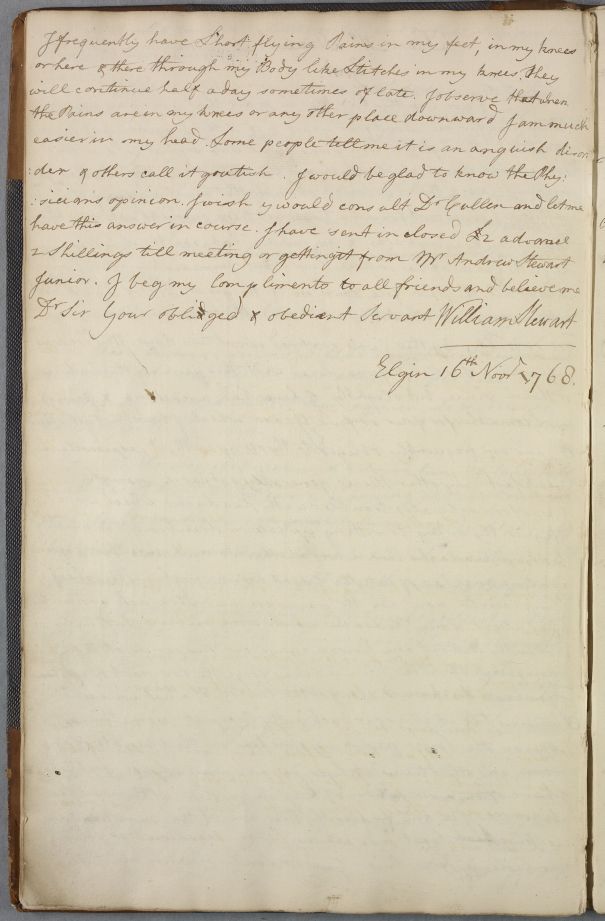 I frequently have Short flying Pains in my feet, in my knees
or here & there through my Body like Stitches in my knees. They
will continue half a day sometimes of late. I observe that when
the Pains are in my knees or any other place downward I am much
easier in my head. Some people tell me it is an anguish disor
:der & others call it goutish. I would be glad to know the Phy:
:sicians opinion. I wish y would consult Dr Cullen and let me
have this answer in course. I have sent inclosed £2
2 Shillings till meeting or getting it from Mr Andrew Stewart
Junior. I beg my Compliments to all friends and believe me
Dr Sir Your obliged & obedient Servant William Stewart
Elgin 16th Novr 1768.